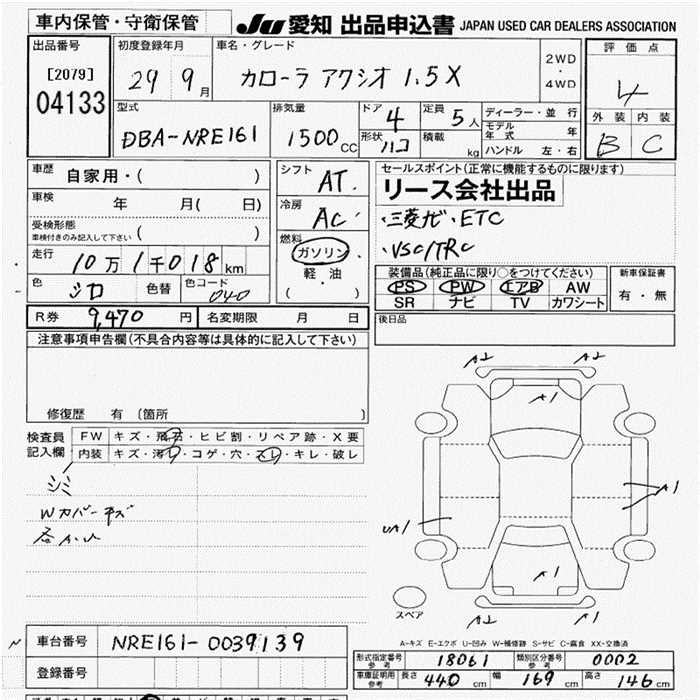 車内保管・守衛保管 JU 愛知 出品申込書 JAPAN USED CAR DEALERS ASSOCIATION
出品番号 初度登録年月 車名・グレード 評価点
[2079] 04133 29 9月 カローラ アクシオ 1.5X 2WD・4WD 4
型式 排気量 ドア 4 定員 5人 ディーラー・並行 外装 内装
DBA-NRE161 1500cc 形状 ハコ 積載 kg モデル年式 年 B C
ハンドル 左・右
車歴 自家用・( ) シフト AT セールスポイント(正常に機能するものに限ります)
車検 年 月( 日) 冷房 AC リース会社出品
受検形態 車検付きのみ記入して下さい ( ) ・三菱ナビ・ETC
燃料 ガソリン、軽・油 ( ) ・VSC/TRC
走行 10万1千018km
色 シロ 色替 色コード 040
装備品(純正品に限り○をつけてください) 新車保証書
PS PW エアB AW 有・無
SR ナビ TV カワシート
R券 9,470円 名変期限 月 日 後日品
注意事項申告欄(不具合内容等は具体的に記入して下さい)
修復歴 有 〔箇所 〕
検査員記入欄 FW キズ・飛石・ヒビ割・リペア跡・X要
内装 キズ・汚レ・コゲ・穴・スレ・キレ・破レ
シミ
Wカバーキズ
A2 A2
A1
A1
UA1
A1
A2 A1
スペア
A-キズ E-エクボ U-凹み W-補修跡 S-サビ C-腐食 XX-交換済
車台番号 NRE161-0039139
登録番号
形式指定番号 参考 18061 類別区分番号 参考 0002
車庫証明用 参考 長さ 440cm 幅 169cm 高さ 146cm